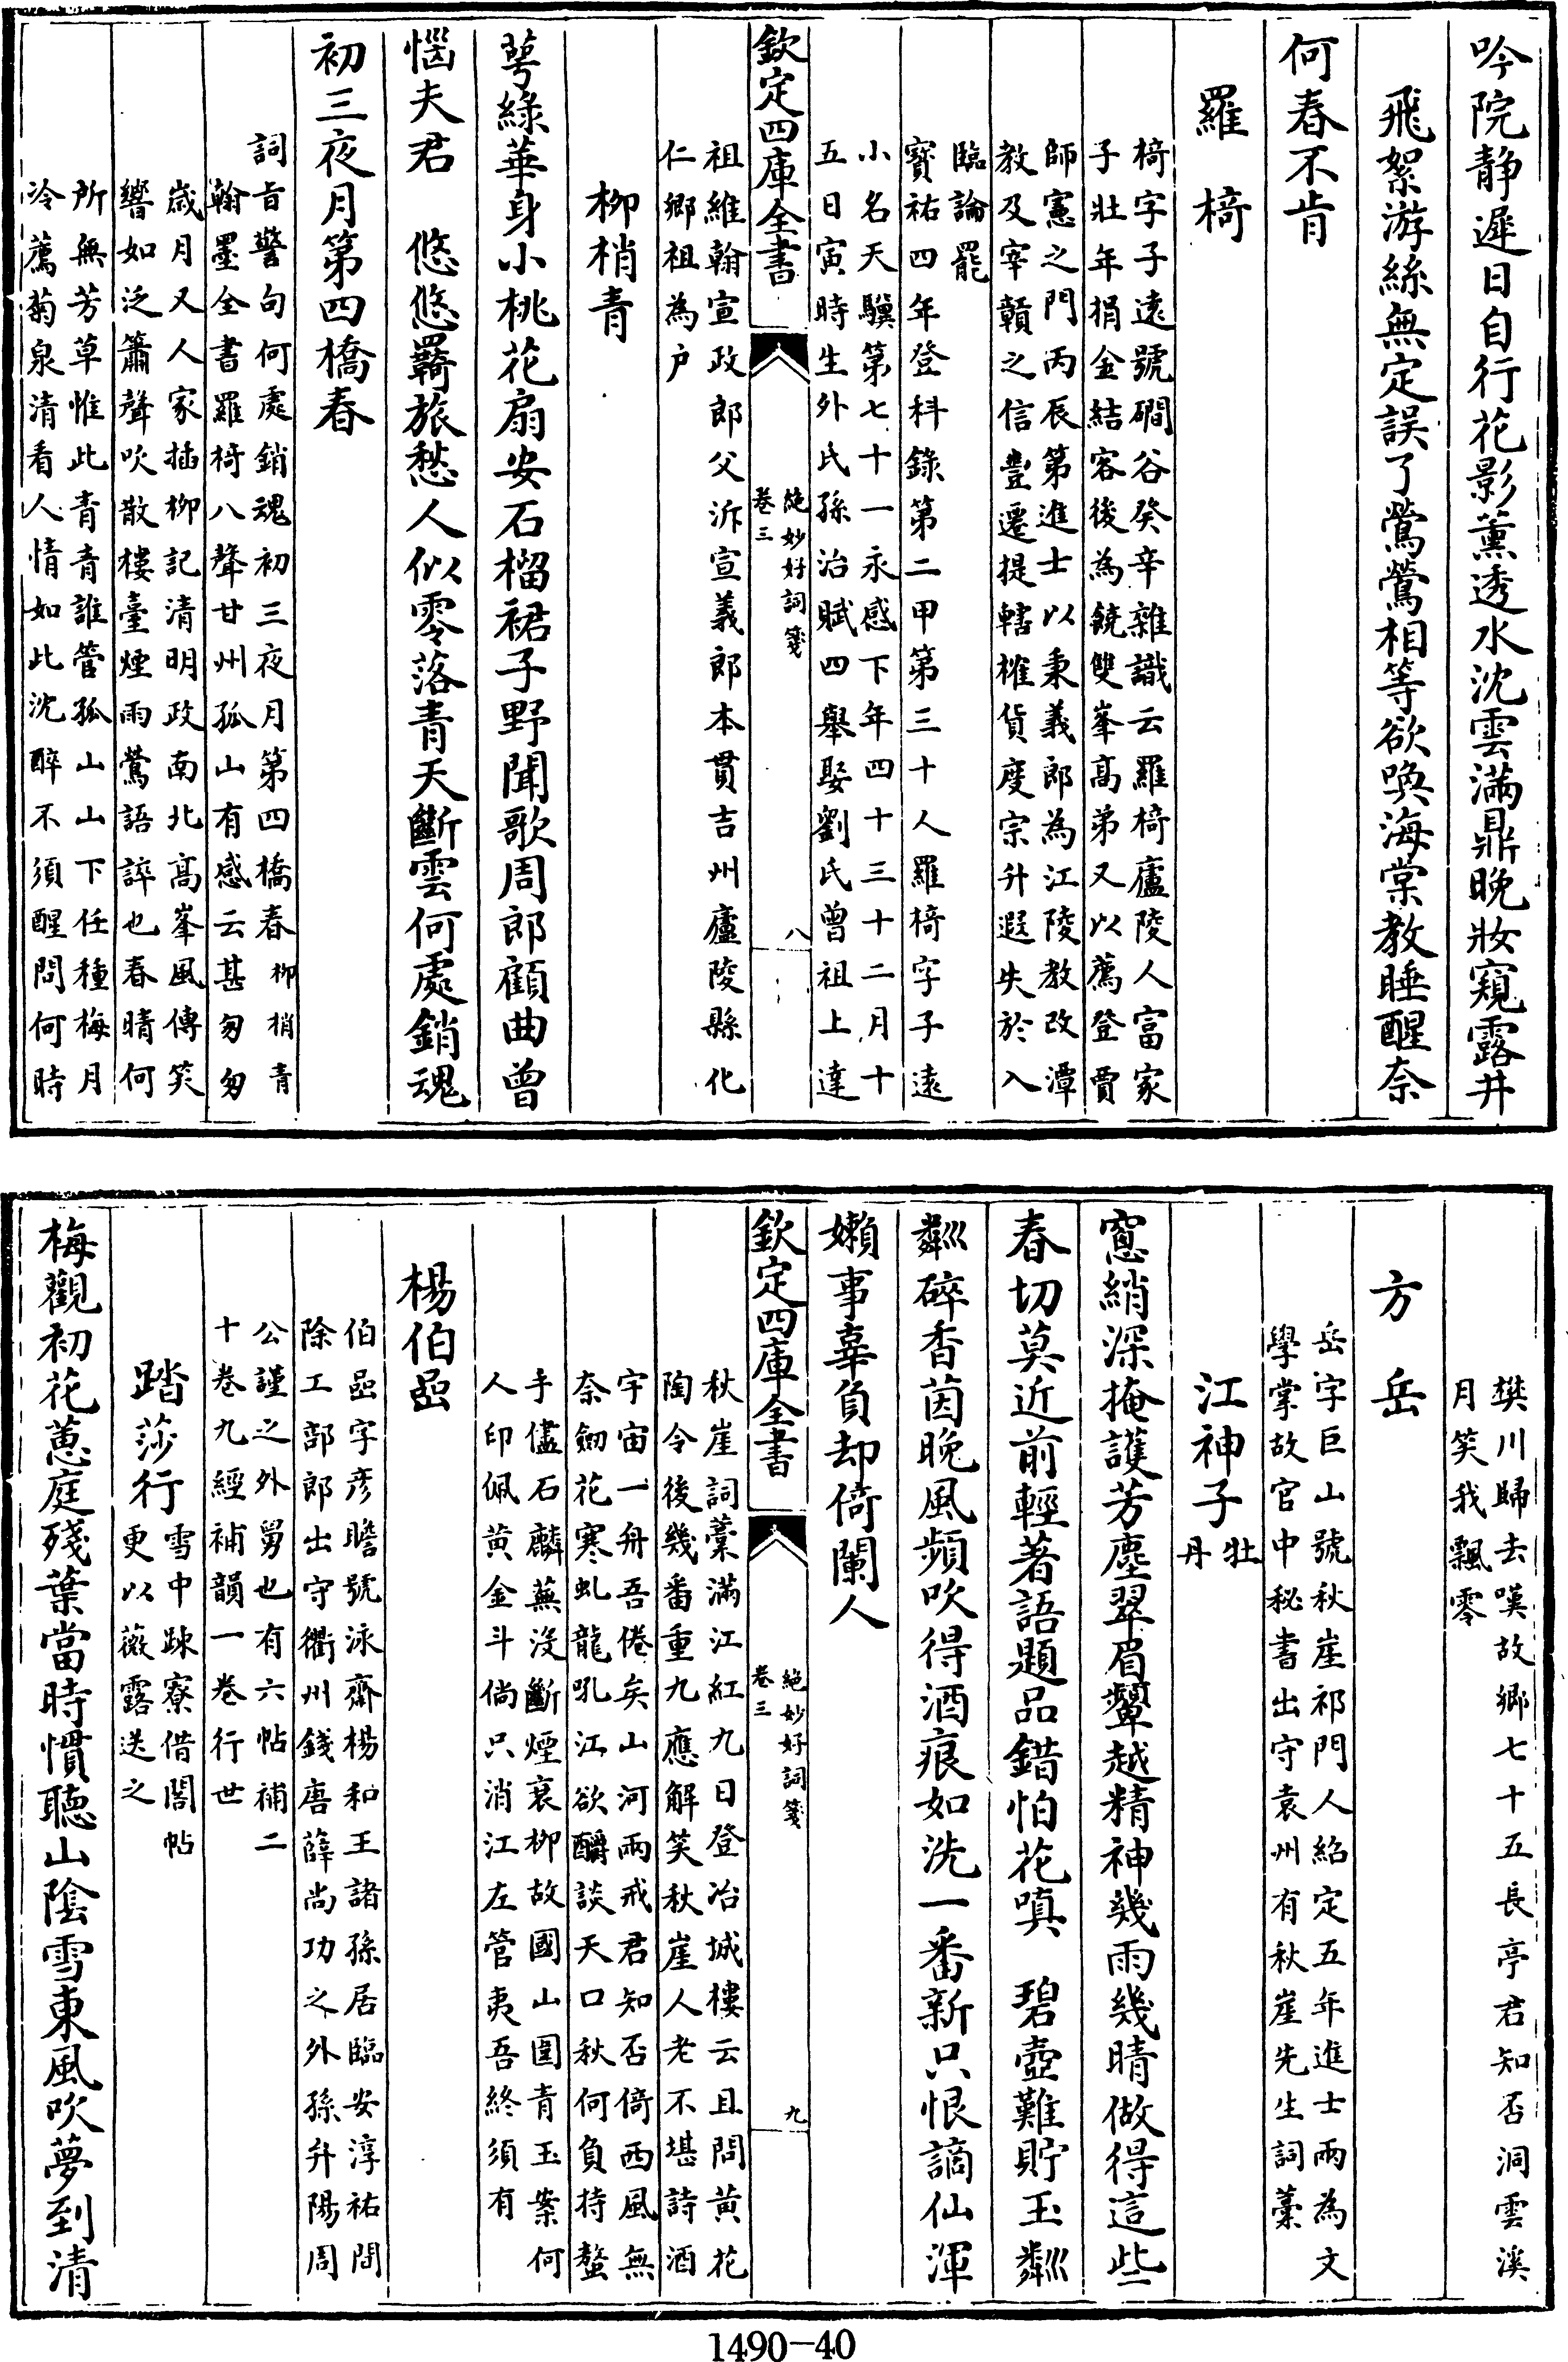 吟院靜遲日自行花影薰透水沈雲滿鼎晚妝窺露井
飛絮游絲無定誤了鶯鶯相等欲喚海棠教睡醒奈
何春不肯
羅椅
椅字子遠號磵谷癸辛雜識云羅椅廬陵人富家
子壯年捐金結客後為饒雙峯高弟又以薦登賈
師憲之門丙辰第進士以秉義郎為江陵教改潭
教及宰贛之信豐遷提轄榷貨度宗升遐失於入
臨論罷
寳祐四年登科錄第二甲第三十人羅椅字子遠
小名天驥第七十一永感下年四十三十二月十
五日寅時生外氏孫治賦四舉娶劉氏曾祖上達
欽定四庫全書
絶妙好詞箋
卷三
八
祖維翰宣政郎父泝宣義郎本貫吉州廬陵縣化
仁鄉祖為户
柳梢青
萼綠華身小桃花扇安石榴裙子野聞歌周郎顧曲曾
惱夫君　悠悠羈旅愁人似零落青天斷雲何處銷魂
初三夜月第四橋春
詞旨警句何處銷魂初三夜月第四橋春柳梢青
翰墨全書羅椅八聲甘州孤山有感云甚匆匆
歲月又人家插柳記清明政南北高峯風傳笑
響如泛簫聲吹散樓臺煙雨鶯語誶也春晴何
所無芳草惟此青青誰管孤山山下任種梅月
冷薦菊泉清看人情如此沈醉不須醒問何時
樊川歸去嘆故鄉七十五長亭君知否洞雲溪
月笑我飄零
方岳
岳字巨山號秋崖祁門人紹定五年進士兩為文
學掌故官中秘書出守袁州有秋崖先生詞藁
江神子牡丹
窻綃深掩護芳塵翠眉顰越精神幾雨幾晴做得這些
春切莫近前輕著語題品錯怕花嗔　碧壺難貯玉粼
粼碎香茵晚風頻吹得酒痕如洗一番新只恨謫仙渾
嬾事辜負却倚闌人
欽定四庫全書
絶妙好詞箋
卷三
九
秋崖詞藁滿江紅九日登冶城樓云且問黄花
陶令後幾番重九應解笑秋崖人老不堪詩酒
宇宙一舟吾倦矣山河兩戒君知否倚西風無
奈劒花寒虬龍吼江欲釂談天口秋何負持螯
手儘石麟蕪没斷煙衰柳故國山圍青玉案何
人印佩黄金斗倘只消江左管夷吾終須有
楊伯嵒
伯嵒字彦瞻號泳齋楊和王諸孫居臨安淳祐間
除工部郎出守衢州錢唐薛尚功之外孫弁陽周
公謹之外舅也有六帖補二
十卷九經補韻一卷行世
踏莎行雪中疎寮借閣帖
更以薇露送之
梅觀初花蕙庭殘葉當時慣聽山陰雪東風吹夢到清
1490-40